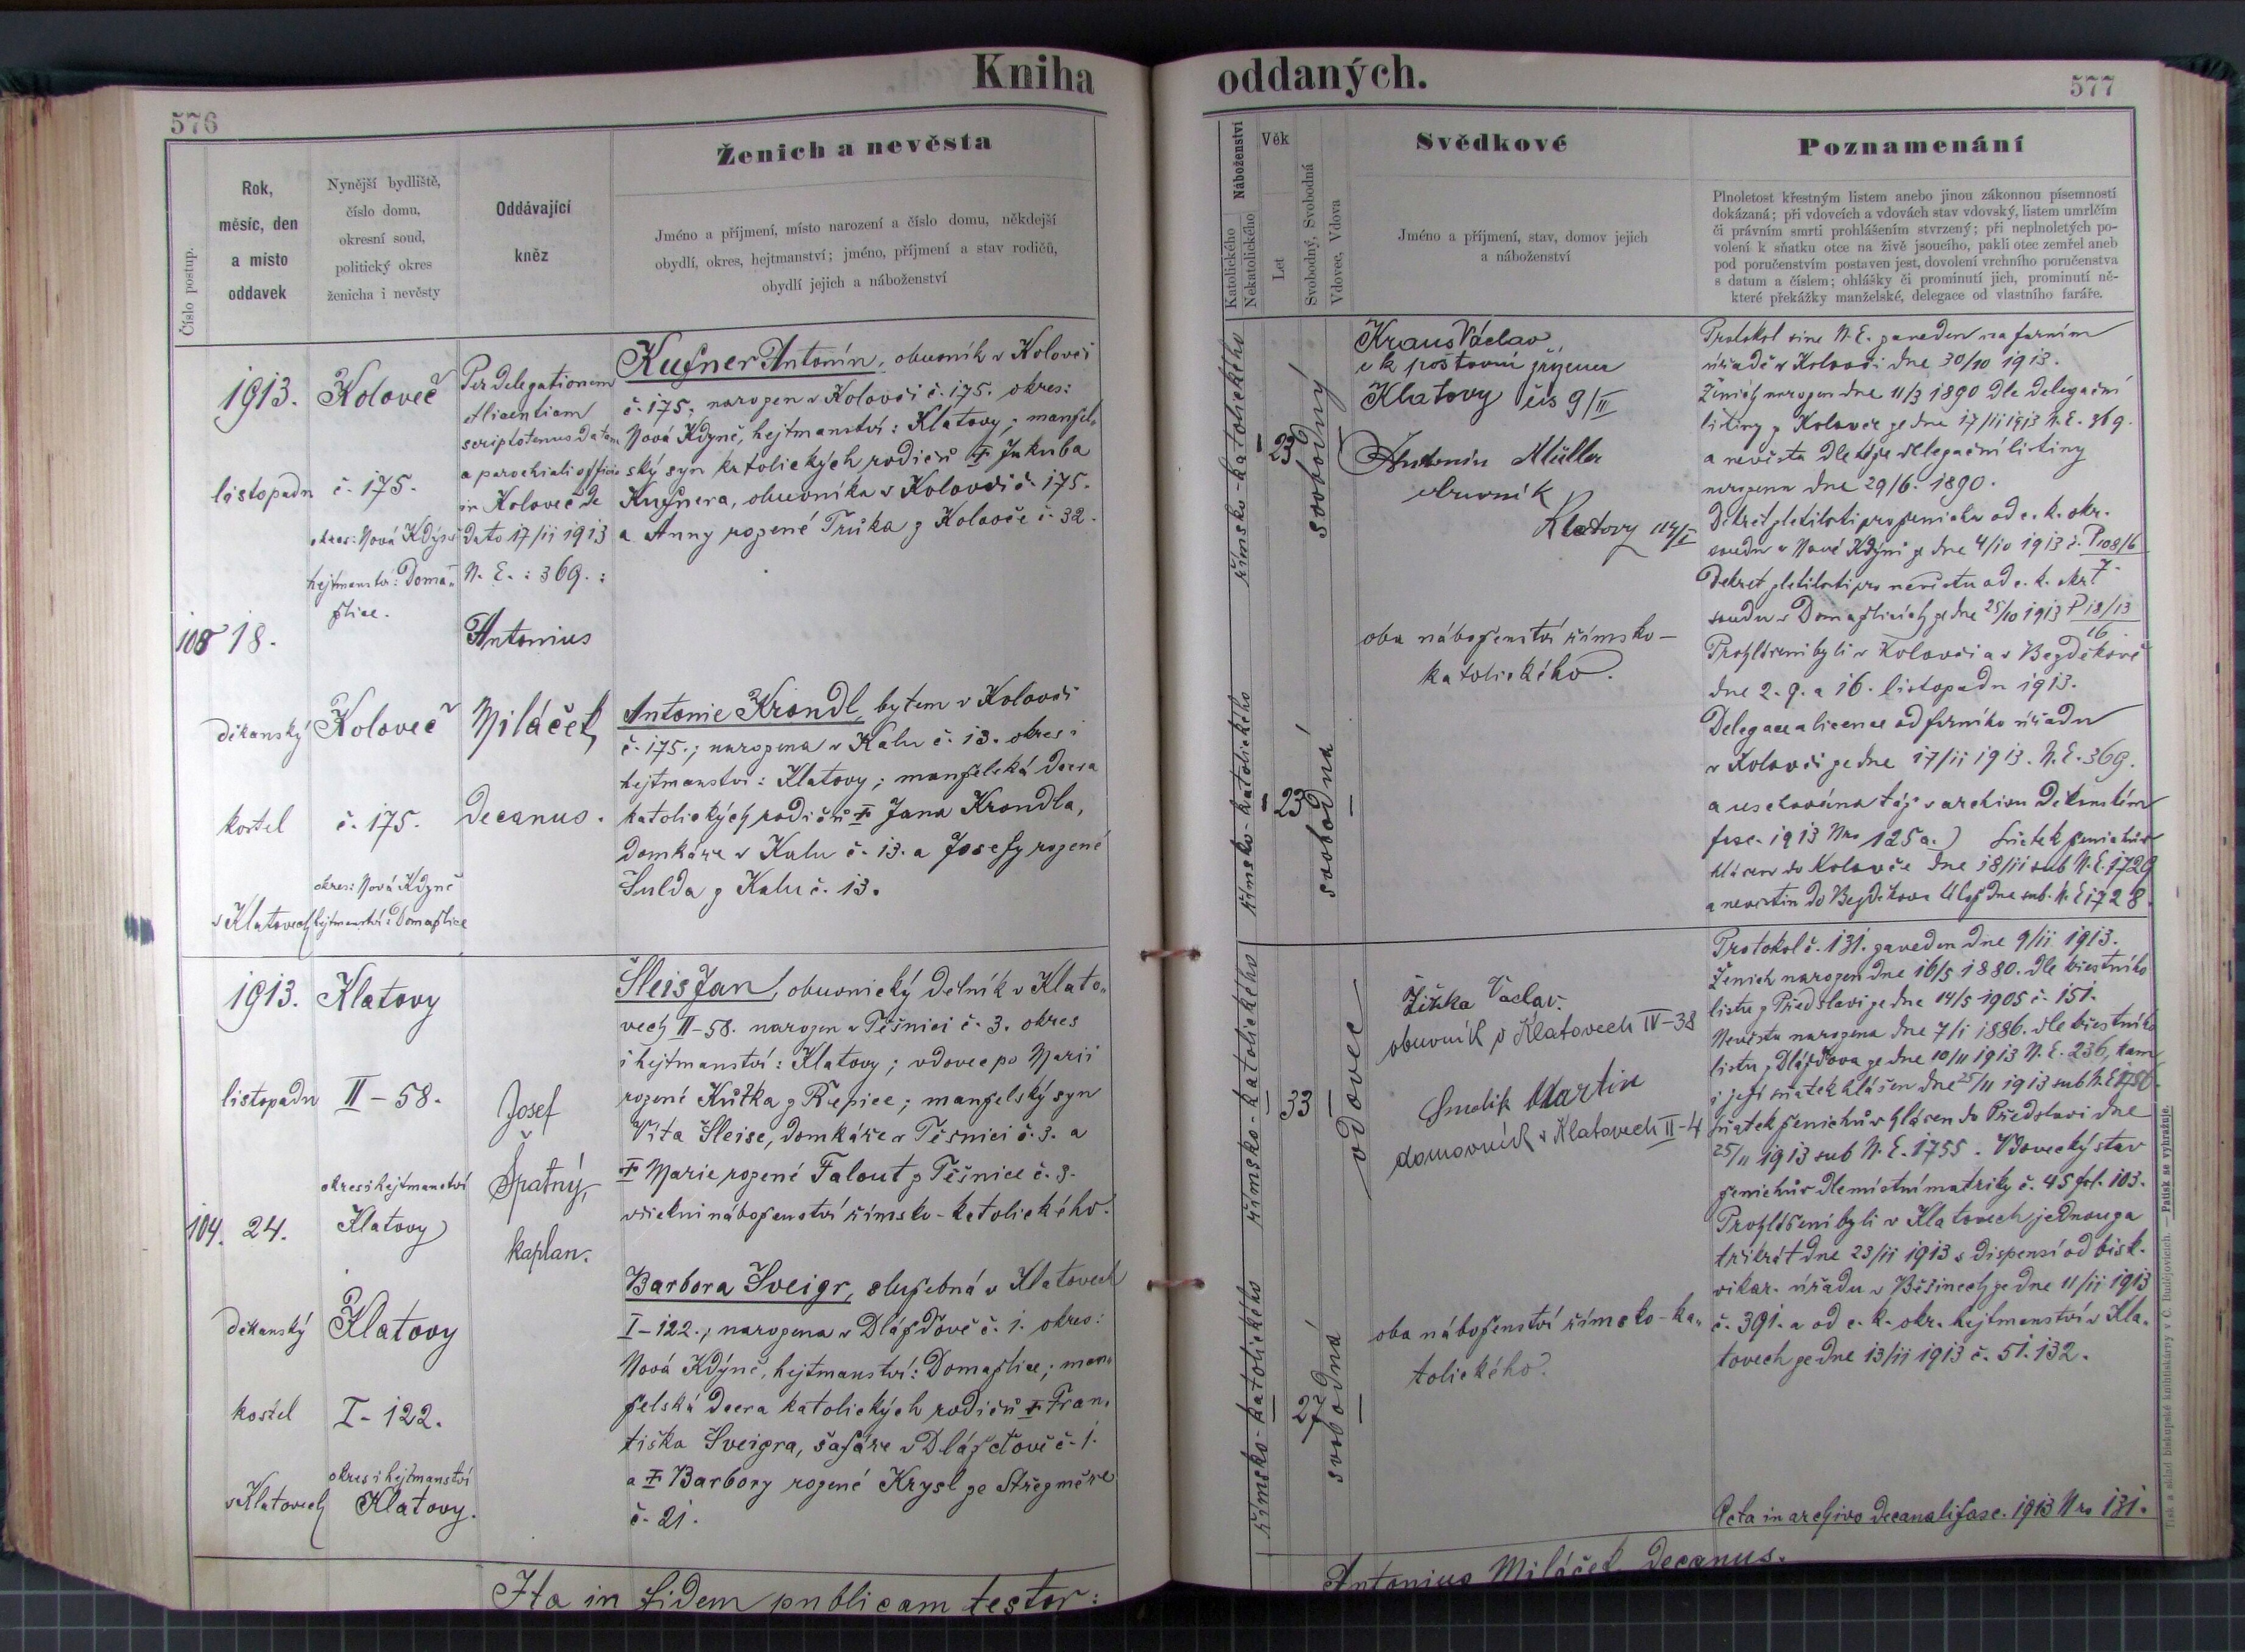 Kniha oddaných.
576
577
Číslo postup.
Rok,
měsíc, den
a místo
oddavek
Nynější bydliště,
číslo domu,
okresní soud,
politický okres
ženicha i nevěsty
Oddávající
kněz
Ženich a nevěsta
Jméno a příjmení, místo narození a číslo domu, někdejší
obydlí, okres, hejtmanství; jméno, příjmení a stav rodičů,
obydlí jejich a náboženství
Náboženství
Katolického
Nekatolického
Věk
Let
Svobodný, Svobodná
Vdovec, Vdova
Svědkové
Jméno a příjmení, stav, domov jejich
a náboženství
Poznamenání
Plnoletost křestným listem anebo jinou zákonnou písemností
dokázaná; při vdovcích a vdovách stav vdovský, listem umrlčím
či právním smrti prohlášením stvrzený; při neplnoletých po-
volení k sňatku otce na živě jsoucího, pakli otec zemřel aneb
pod poručenstvím postaven jest, dovolení vrchního poručenstva
s datum a číslem; ohlášky či prominutí jich, prominutí ně-
které překážky manželské, delegace od vlastního faráře.
1913.
listopadu
18.
děkanský
kostel
v Klatovech
Koloveč
č. 175.
okres: Nová Kdýně
hejtmanstv: Doma-
žlice.
Koloveč
č. 175.
okres: Nová Kdyně
hejtmanství: Domažlice
Per delegationem
et licentiam
scriptotenus datam
a parochiali officio
in Koloveč de
dato 17/11 1913
N. E.: 369.:
Antonius
Miláček,
decanus.
Kufner Antonín, obuvník v Kolovči
č. 175; narozen v Kolovči č. 175. okres:
Nová Kdyně, hejtmanství: Klatovy; manžel-
ský syn katolických rodičů ‡ Jakuba
Kufnera, obuvníka v Kolovči č. 175.
a Anny rozené Truka z Kolovče č. 32.
Antonie Krondl, bytem v Kolovči
č. 175.; narozena v Kalu č. 13. okres i
hejtmanství: Klatovy; manželská dcera
katolických rodičů ‡ Jana Krondla,
domkáře v Kalu č. 13. a Josefy rozené
Sulda z Kalu č. 13.
římsko-katolického
23
svobodný
římsko-katolického
23
svobodná
Kraus Václav
c k poštovní zřízenec
Klatovy čís 9/III
Antonín Müller
obuvník
Klatovy 114/I
oba náboženství římsko-
katolického.
Protokol sine N. E. zaveden na farním
úřadě v Kolovči dne 30/10 1913.
Ženich narozen dne 11/3 1890 dle delegační
listiny z Kolovče ze dne 17/11 1913 N. E. 369.
a nevěsta dle téže delegační listiny
narozena dne 29/6. 1890.
Dekret zletilosti pro ženicha od c. k. okr.
soudu v Nové Kdýni z dne 4/10 1913 č. P108/6
7.
Dekret zletilosti pro nevěstu od c. k. okr.
soudu v Domažlicích ze dne 25/10 1913 P 18/13
16
Prohlášeni byli v Kolovči a v Bezděkově
dne 2. 9. a 16. listopadu 1913.
Delegace a licence od farního úřadu
v Kolovči ze dne 17/11 1913. N. E. 369.
a uschována též v archivu děkanském
fasc. 1913 Nro 125 a.) Sňatek ženichův
hlášen do Kolovče dne 18/11 sub N. E. 1729
a nevěstin do Bezděkova téhož dne sub. N. E 1728.
1913.
listopadu
104. 24.
děkanský
kostel
v Klatovech
Klatovy
II – 58.
okres i hejtmanství
Klatovy
Klatovy
I – 122.
okres i hejtmanství
Klatovy.
Josef
Špatný,
kaplan.
Šleis Jan, obuvnický dělník v Klato-
vech II–58. narozen v Těšnici č. 3. okres
i hejtmanství: Klatovy; vdovec po Marii
rozené Kůtka z Řepice; manželský syn
Víta Šleise, domkáře v Těšnici č. 3. a
‡ Marie rozené Falout z Těšnice č. 3.
všickni náboženství římsko-katolického.
Barbora Sveigr, služebná v Klatovech
I–122.; narozena v Dlážďově č. 1. okres:
Nová Kdýně, hejtmanství: Domažlice; man-
želská dcera katolických rodičů ‡ Fran-
tiška Sveigra, šafáře v Dlážďově č. 1.
a ‡ Barbory rozené Krysl ze Střezměře
č. 21.
římsko-katolického
33
vdovec
římsko-katolického
27
svobodná
Žižka Václav.
obuvník v Klatovech IV–38
Smolik Martin
domovník v Klatovech II–4
oba náboženství římsko-ka-
tolického.
Protokol č. 131. zaveden dne 9/11 1913.
Ženich narozen dne 16/5 1880. dle křestního
listu z Předslavi ze dne 14/5 1905 č. 151.
Nevěsta narozena dne 7/1 1886. dle křestního
listu z Dlážďova ze dne 10/11 1913 N. E. 236, kam
i její sňatek hlášen dne 25/11 1913 sub N. E 1756.
Sňatek ženichův hlášen do Předslavi dne
25/11 1913 sub N. E. 1755. Vdovecký stav
ženichův dle místní matriky č. 45 fol. 103.
Prohlášeni byli v Klatovech jednou za
třikrát dne 23/11 1913 s dispensí od bisk.
vikar. úřadu v Běšinech ze dne 11/11 1913
č. 391. a od c. k. okr. hejtmanství v Kla-
tovech ze dne 13/11 1913 č. 51.132.
Acta in archivo decanali fasc. 1913 Nro 131.
Ita in fidem publicam testor:
Antonius Miláček, decanus.
Tisk a sklad biskupské knihtiskárny v Č. Budějovicích. — Patisk se vyhražuje.